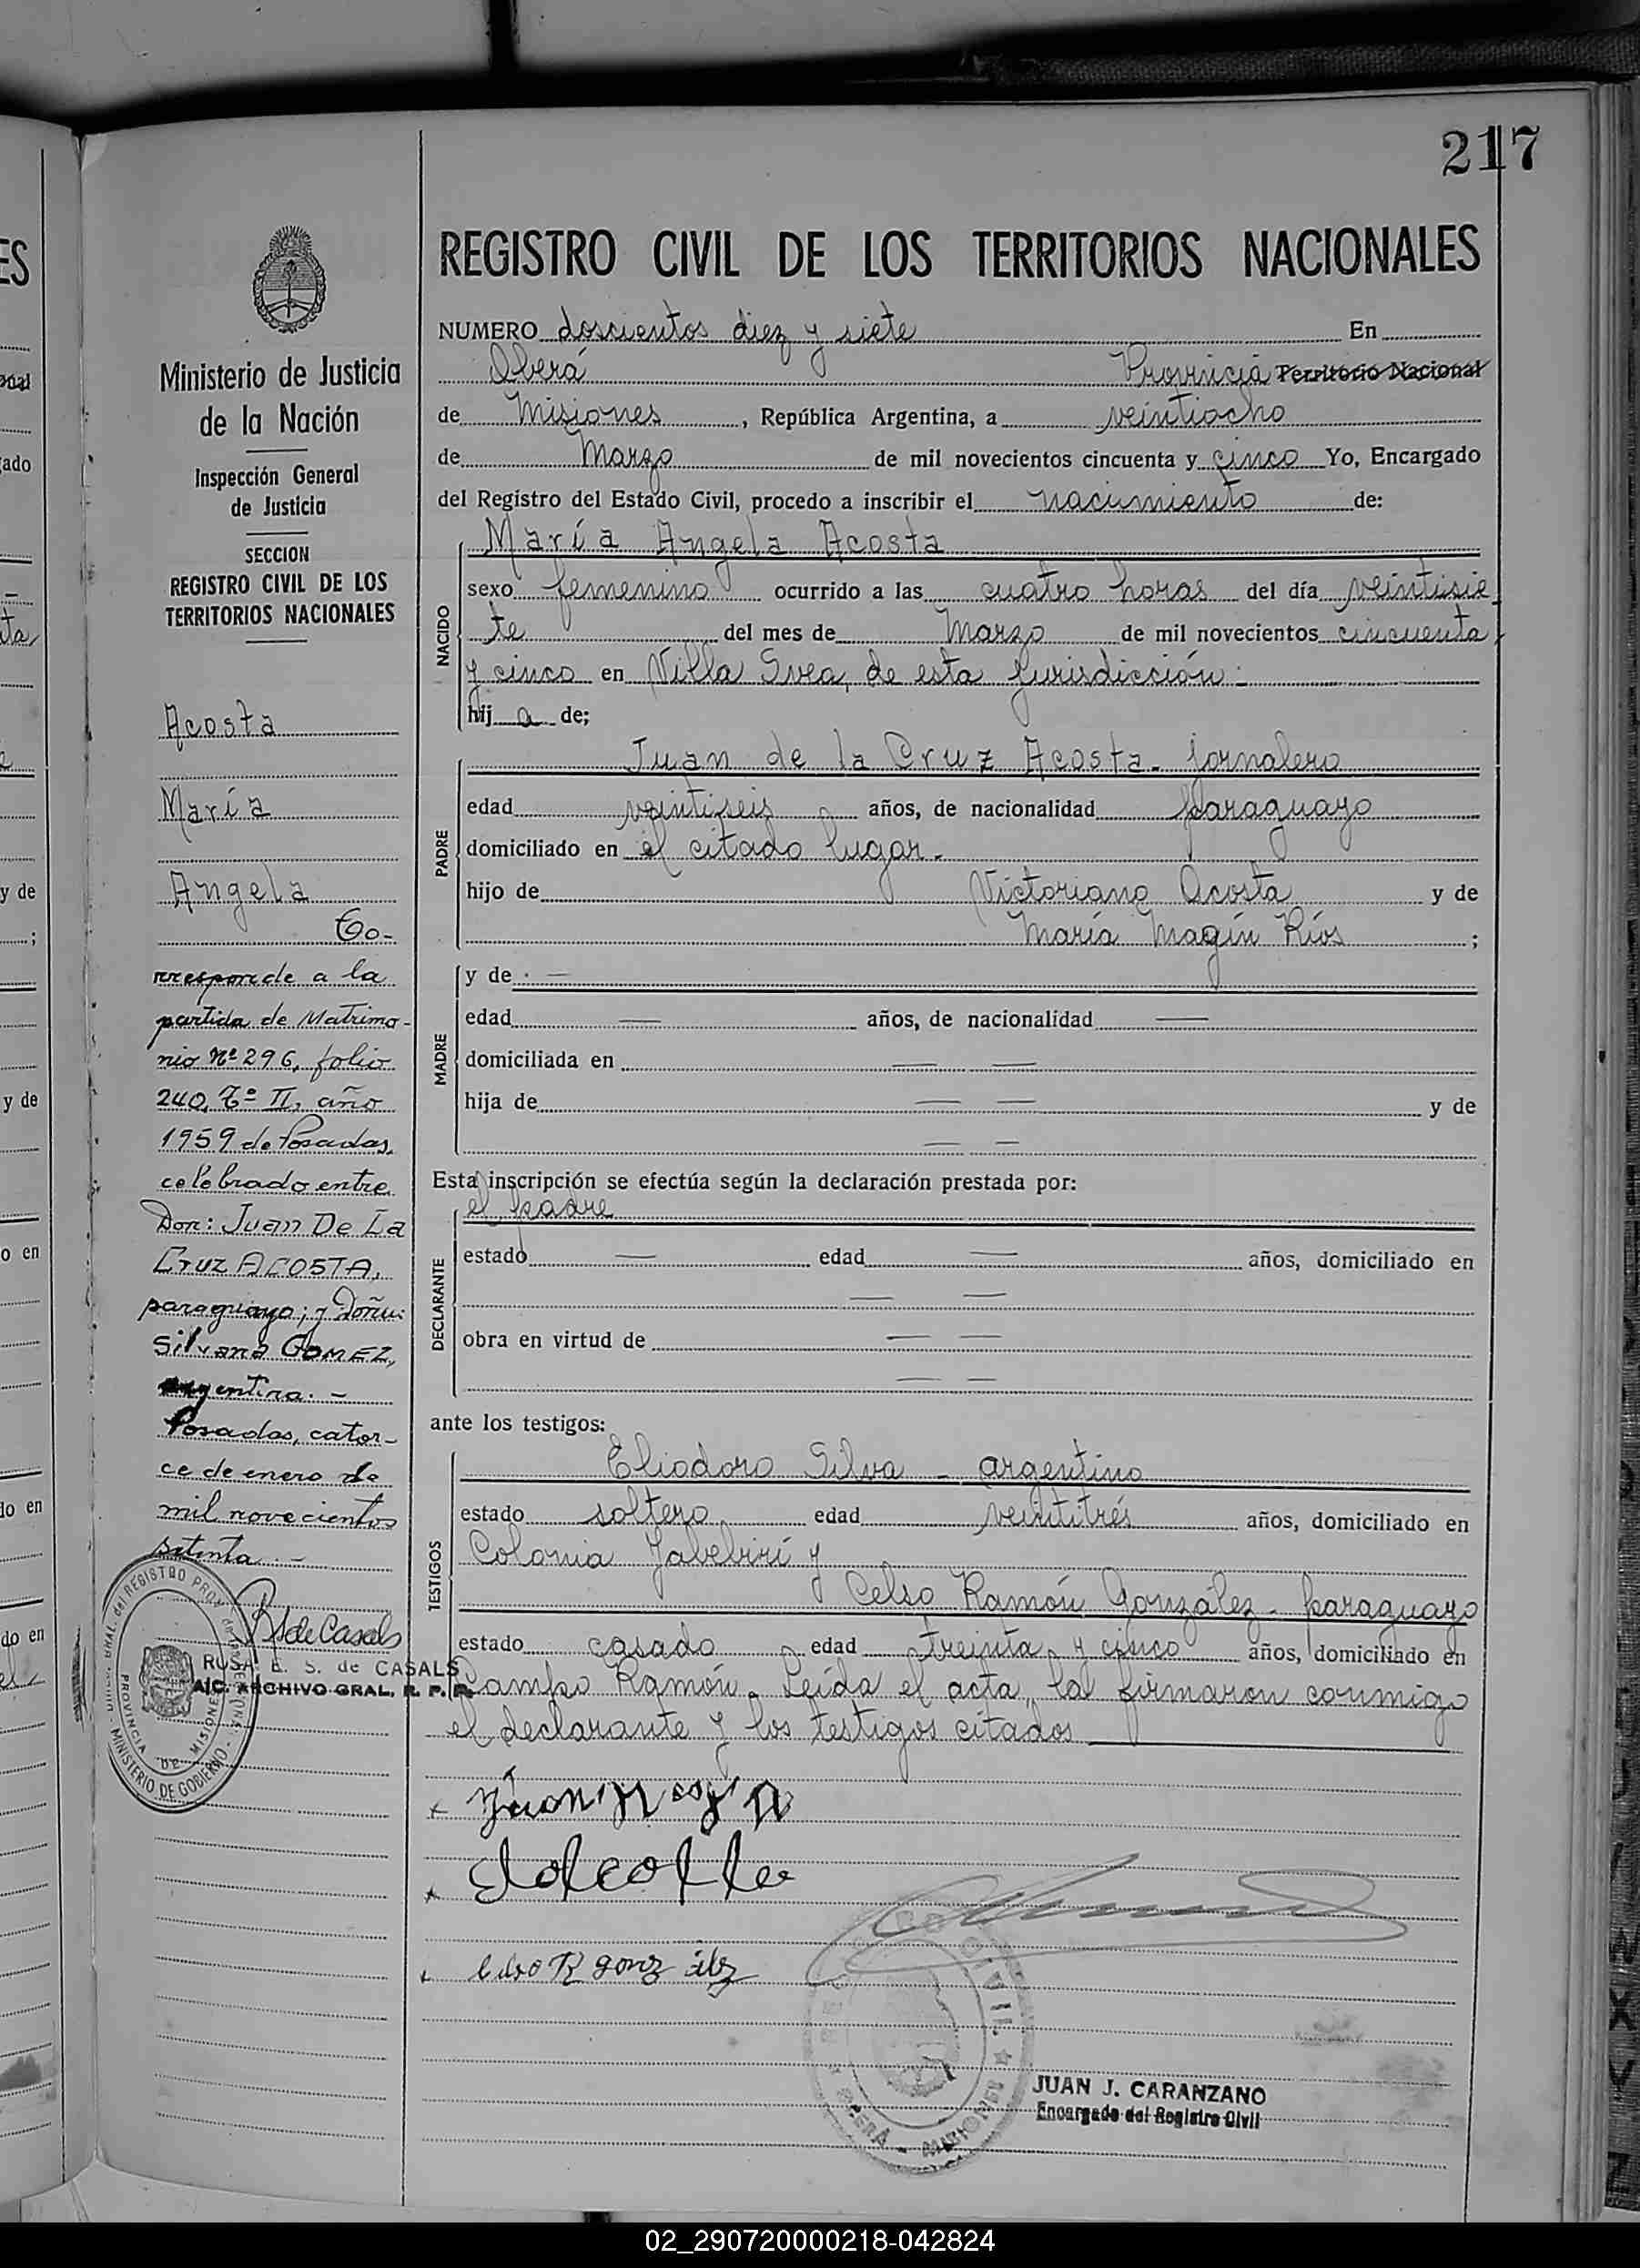 217
REGISTRO CIVIL DE LOS TERRITORIOS NACIONALES
NUMERO doscientos diez y siete En
Oberá Provincia Territorio Nacional
de Misiones, República Argentina, a veintiocho
de Marzo de mil novecientos cincuenta y cinco Yo, Encargado
del Registro del Estado Civil, procedo a inscribir el nacimiento de:
NACIDO
María Angela Acosta
sexo femenino ocurrido a las cuatro horas del día veintisie
te del mes de Marzo de mil novecientos cincuenta
y cinco en Villa Svea, de esta jurisdicción.-
hij a de;
PADRE
Juan de la Cruz Acosta- jornalero
edad veintiseis años, de nacionalidad paraguayo
domiciliado en el citado lugar.-
hijo de Victoriano Acosta y de
María Magín Ríos ;
MADRE
y de —
edad — años, de nacionalidad —
domiciliada en — —
hija de — — y de
— —
Esta inscripción se efectúa según la declaración prestada por:
DECLARANTE
el padre
estado — edad — años, domiciliado en
— —
obra en virtud de — —
— —
ante los testigos:
TESTIGOS
Eliodoro Silva - argentino
estado soltero edad veintitrés años, domiciliado en
Colonia Yabebirí y
Celso Ramón González- paraguayo
estado casado edad treinta y cinco años, domiciliado en
Campo Ramón. Leída el acta, la firmaron conmigo
el declarante y los testigos citados
Celso R gonzález
CIVIL
OBERA - MISIONES
JUAN J. CARANZANO
Encargado del Registro Civil
Ministerio de Justicia
de la Nación
Inspección General
de Justicia
SECCION
REGISTRO CIVIL DE LOS
TERRITORIOS NACIONALES
Acosta
María
Angela
Co-
rresponde a la
partida de Matrimo-
nio Nº 296, folio
240, Tº II, año
1959 de Posadas,
celebrado entre
Don: Juan De La
Cruz ACOSTA,
paraguayo; y Doña:
Silvana GOMEZ,
argentina.-
Posadas, cator-
ce de enero de
mil novecientos
setenta.-
R S de Casals
ROSA E. S. de CASALS
A/C. ARCHIVO GRAL. R. P. P.
GRAL. del REGISTRO PROV. de las PERSONAS
PROVINCIA DE MISIONES
MINISTERIO DE GOBIERNO
ES
onal
ado
ta
y de
;
y de
o en
do en
do en
02_290720000218-042824